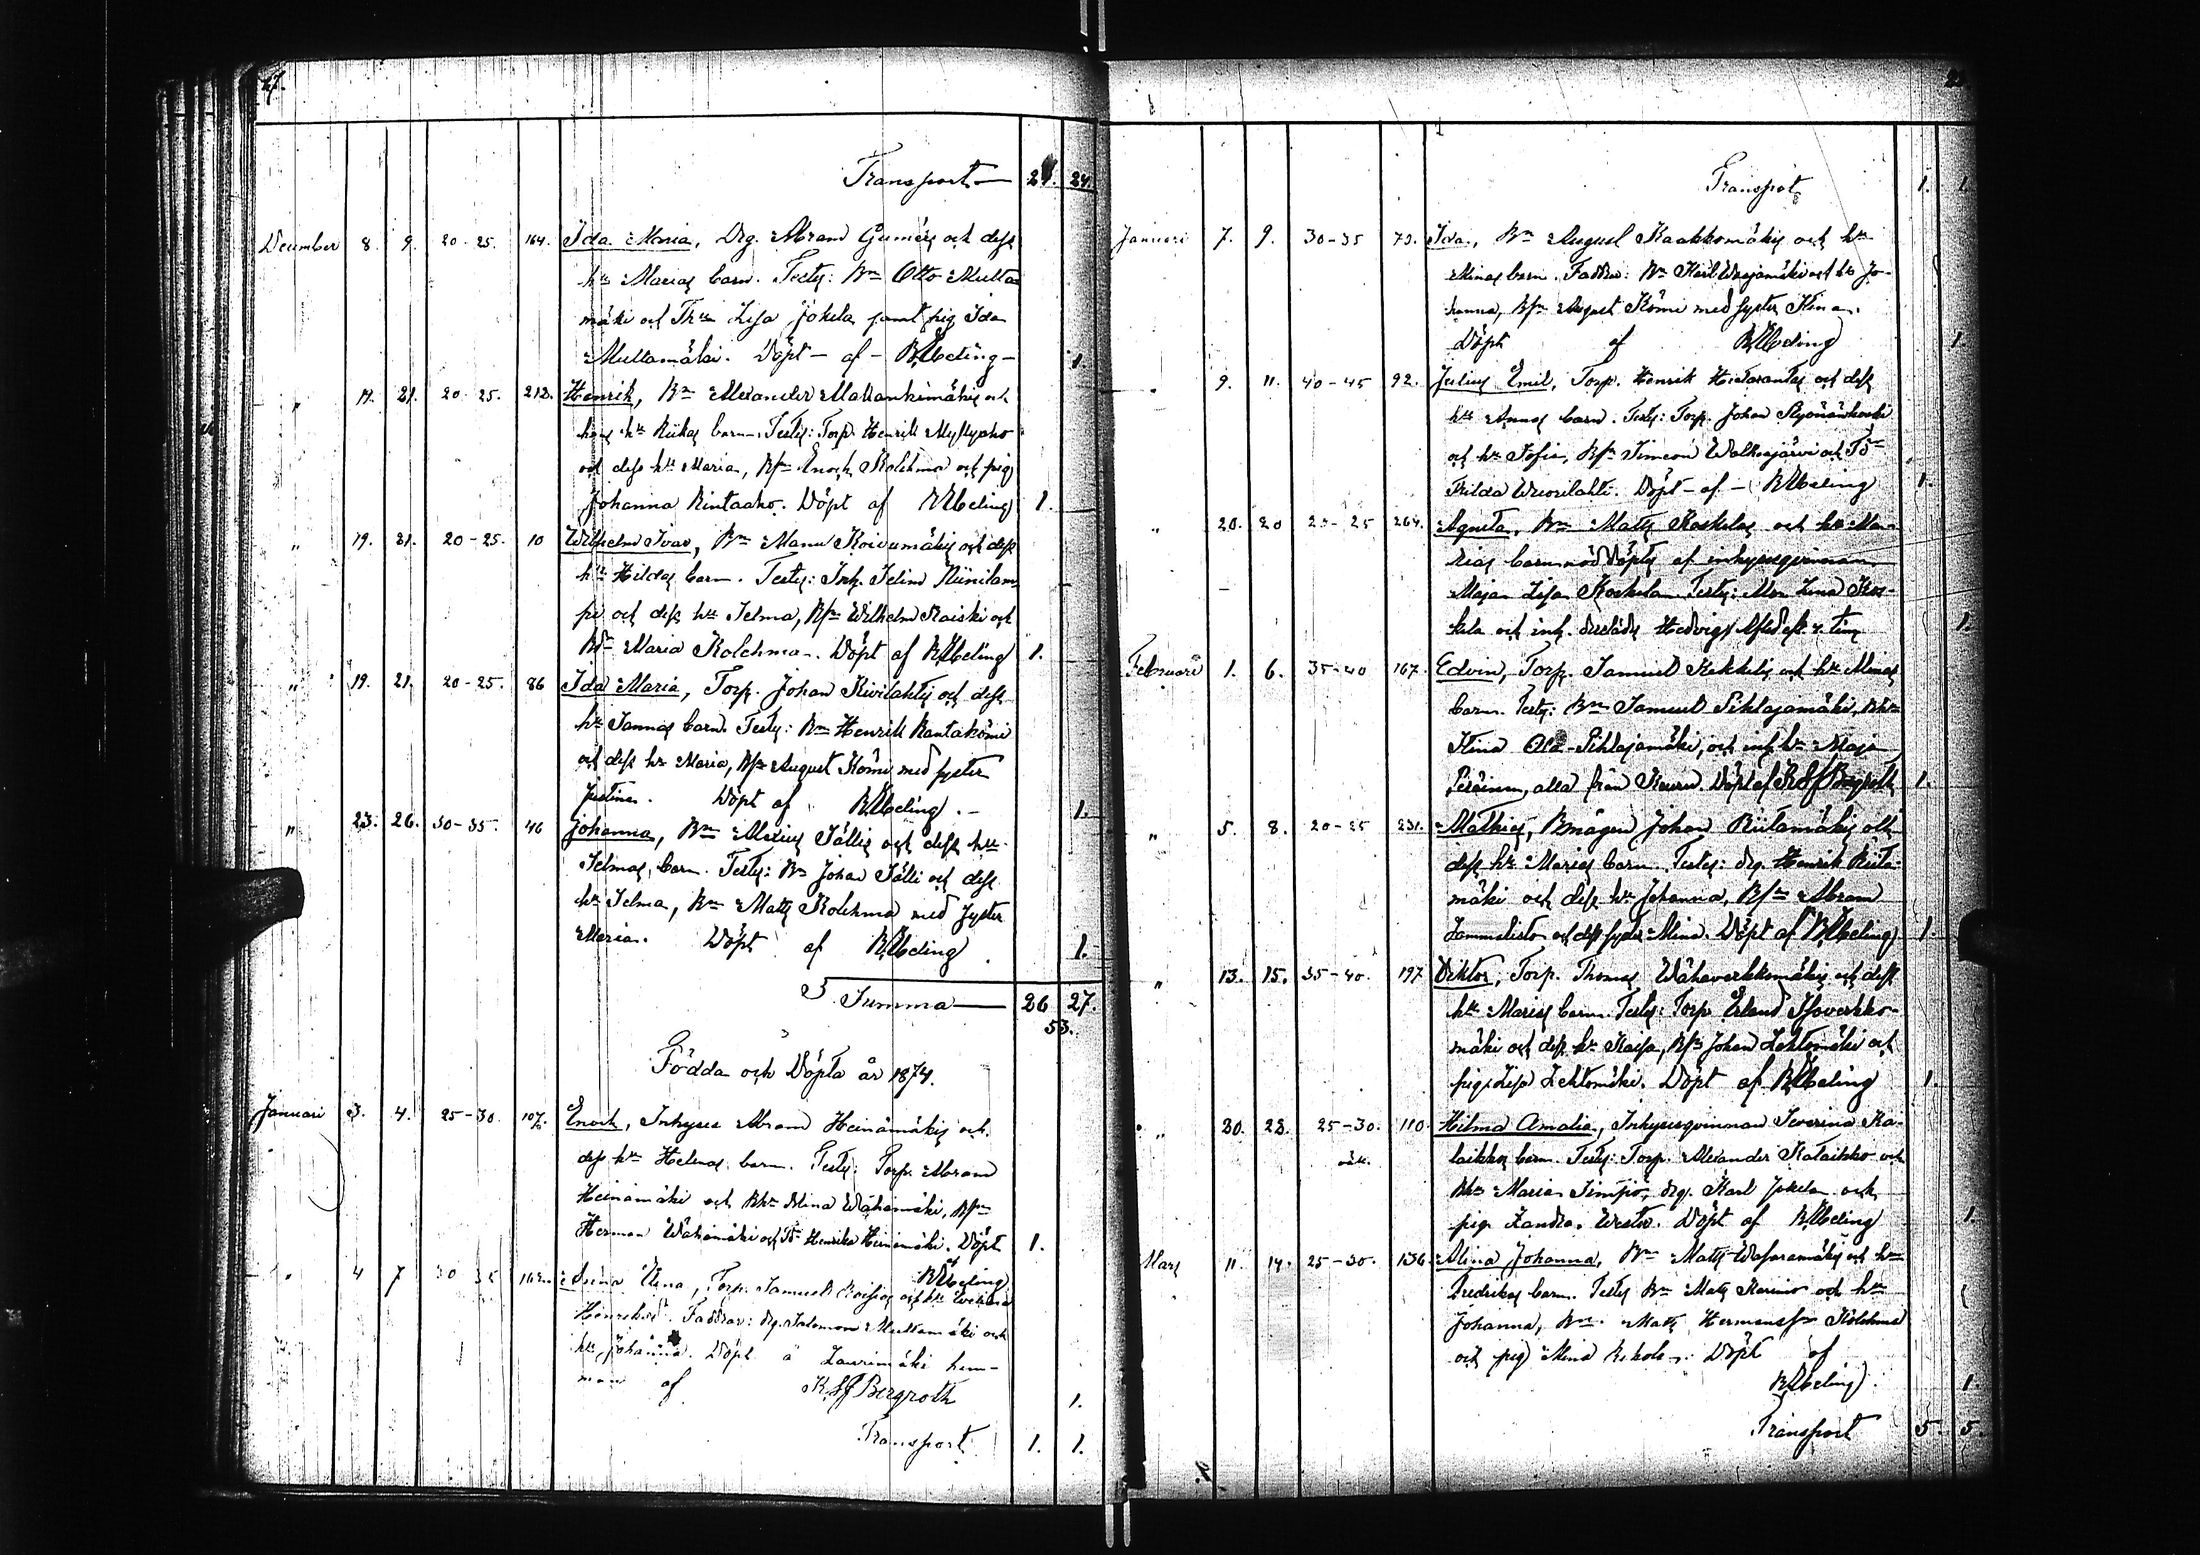 27.
Transport — 24.
December 8. 9. 20-25. 164. Ida Maria, Drg. Abram Gumérs och dess
hu Marias barn. Testes: Bn Otto Multa-
mäki och Lisa Jokela samt pig Ida
Multamäki. Döpt — af — Ebeling — 1.
" 19. 21. 20-25. 212. Henrik, Bn Alexander och
hans hu Rikas barn. Testes: Torp. Henrik Myllyaho
och dess hu Maria, Enoch Kolehma och pig
Johanna Rintaaho. Döpt af Ebeling 1.
" 19. 21. 20-25. 10 Wilhelm Ivar, Bn Manu Koivumäkis och dess
hu Hildas barn. Testes: Inh. Selim Niinilam-
pi och dess hu Selma, Wilhelm Kaiski och
Maria Kolehma. Döpt af Ebeling 1.
" 19. 21. 20-25. 86 Ida Maria, Torp. Johan Kivilahtis och dess
hu Sannas barn. Testes: Bn Henrik Rantakömi
och dess hu Maria, August Kömi med syster
Justina. Döpt af Ebeling. — 1.
" 23. 26. 30-35. 46 Johanna, Bn Sällis och dess hu
Selmas barn. Testes: Bn Johan Sälli och dess
hu Selma, Bn Matts Kolehma med syster
Maria. Döpt af Ebeling 1.
Summa — 26 27.
53.
Födda och Döpta år 1874.
Januari 3. 4. 25-30. 107. Enoch, Inhyses Abram Heinämäkis och
dess hu Helenas barn. Testes: Torp. Abram
Heinämäki och Mina Wähämäki,
Herman Wähämäki och Henrika Heinämäki. Döpt 1.
Ebeling
" 4 7 30 35 Elena, Torp. Samuel och hu
Faddrar: drg. Salomon Multamäki och
hu Johanna. Döpt å Laurimäki hem-
man af Bergroth 1.
Transport 1. 1.
Transport 1. 1.
Januari 7. 9. 30-35 Ida, Bn August Kaakkomäkis och hu
Minas barn. Faddrar: Bn Karl och hu Jo-
hanna, August Kömi med syster Stina.
Döpt af Ebeling 1.
" 9. 11. 40-45 92. Julius Emil, Torp. Henrik Hietarantas och dess
hu Annas barn. Testes: Torp. Johan
och hu Sofia, Simeon Walkeajärvi och
Hilda Wuorilahti. Döpt — af — Ebeling 1.
" 20. 20 264. Agneta, Bn Matts Koskelas och hu Ma-
rias barn nöddöpts af inhysesqvinnan
Majan Lisa Koskela. Testes: Lina Kos-
kela och inh. Hedvig 1.
Februari 1. 6. 35-40 167. Edvin, Torp. Samuel Kekkilis och hu Minas
barn. Testes: Bn Samuel Pihlajamäki,
Stina Ala-Pihlajamäki, och inh. hu Maja
alla från Keuru. Döpt af Bergroth 1.
" 5. 8. 20-25 231. Mathias, Bmågen Johan Riitamäkis och
dess hu Marias barn. Testes: drg. Henrik Riita-
mäki och dess hu Johanna, Abram
Lammelisto och dess syster Mina. Döpt af Ebeling 1.
" 13. 15. 35-40. 197 Viktor, Torp. Thomas Wähäverkkomäkis och dess
hu Marias barn. Testes: Torp. Erland Isoverkko-
mäki och dess hu Kaisa, Johan Lehtomäki och
pig. Lisa Lehtomäki. Döpt af Ebeling 1.
" 20. 22. 25-30. 110. Hilma Amalia, Inhysesqvinnan Severina Ka-
laikkos barn. Testes: Torp. Alexander Kataikko och
Maria Simpio, drg. Karl Jokela och
pig. Sandra. Döpt af Ebeling 1.
Mars 11. 14. 25-30. 136 Alina Johanna, Bn Matts Wasaramäkis och hu
Fredrikas barn. Testes Bn Matts och hu
Johanna, Bn Matts Hermansson Kolehma
och pig Mina. Döpt af
Ebeling. 1.
Transport 5. 5.